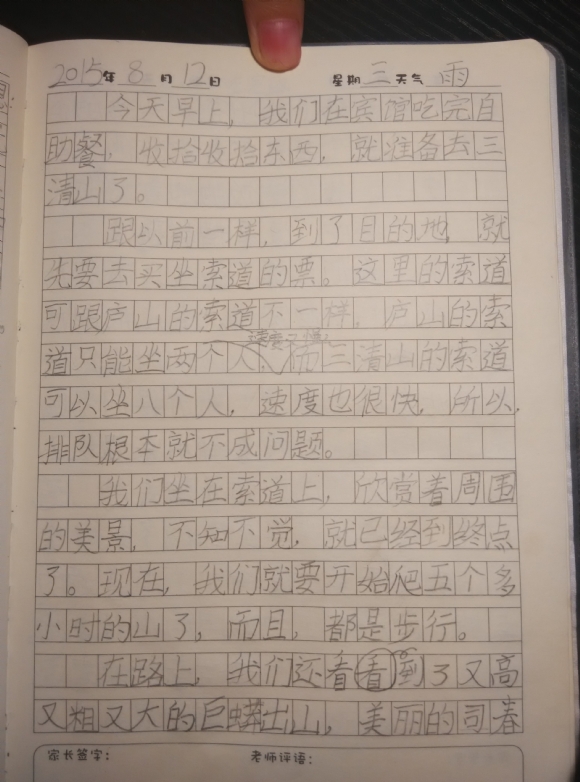 2015年8月12日 星期三天气雨
今天早上，我们在宾馆吃完自
助餐，收拾收拾东西，就准备去三
清山了。
跟以前一样，到了目的地，就
先要去买坐索道的票。这里的索道
可跟庐山的索道不一样，庐山的索
速度又慢；
道只能坐两个人，而三清山的索道
可以坐八个人，速度也很快，所以，
排队根本就不成问题。
我们坐在索道上，欣赏着周围
的美景，不知不觉，就已经到终点
了。现在，我们就要开始爬五个多
小时的山了，而且，都是步行。
在路上，我们还看看到了又高
又粗又大的巨蟒出山，美丽的司春
家长签字： 老师评语：